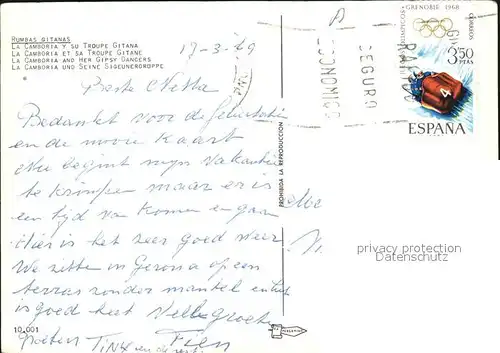 RUMBAS GITANAS
LA CAMBORIA Y SU TROUPE GITANA
LA CAMBORIA ET SA TROUPE GITANE
LA CAMBORIA AND HER GIPSY DANCERS
LA CAMBORIA UND SEINE ZIGEUNERGRUPPE
17-3-69
Beste Netta
Bedankt voor de felicitatie
en de mooie kaart
Nu begint mijn vakantie
te krimpen maar er is
een tijd van komen en gaan
Hier is het zeer goed weer
We zitten in Gerona op een
terras zonder mantel
is goed heet Vele groeten
groeten Tinx en de rest. Fien
10.001
PROHIBIDA LA REPRODUCCION
GRENOBLE 1968
CORREOS
3,50
PTAS
4
ESPAÑA
ECONOMICO
SEGURO
RAPIDO
privacy protection
Datenschutz